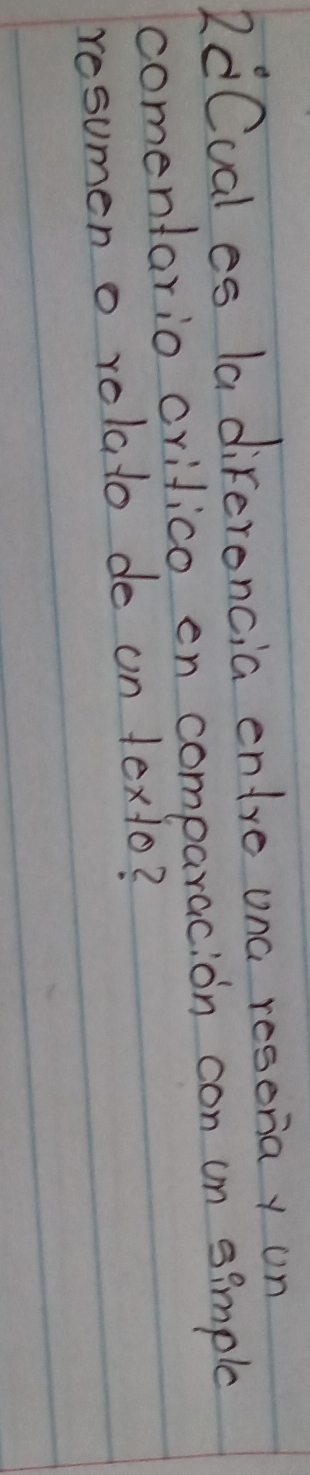 2¿Cual es la diferencia entre una reseña y un
comentario critico en comparación con un simple
resumen o relato de un texto?